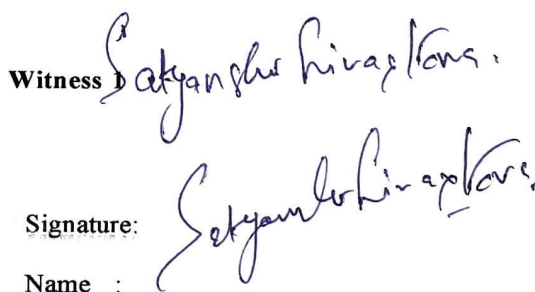 Witness 1 Satyanshu Srivastava.
Signature: Satyanshu Srivastava.
Name :